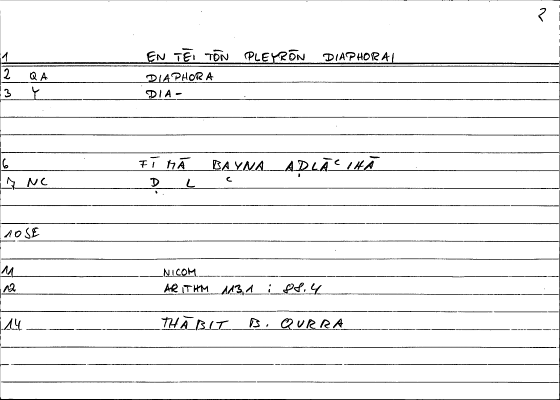 2
1 EN TĒI TŌN PLEYRŌN DIAPHORAI
2 QA DIAPHORA
3 Y DIA-
6 FĪ MĀ BAYNA AḌLĀʿIHĀ
7 NC Ḍ L ʿ
10 SE
11 NICOM
12 ARITHM 113,1 : 88.4
14 THĀBIT B. QURRA